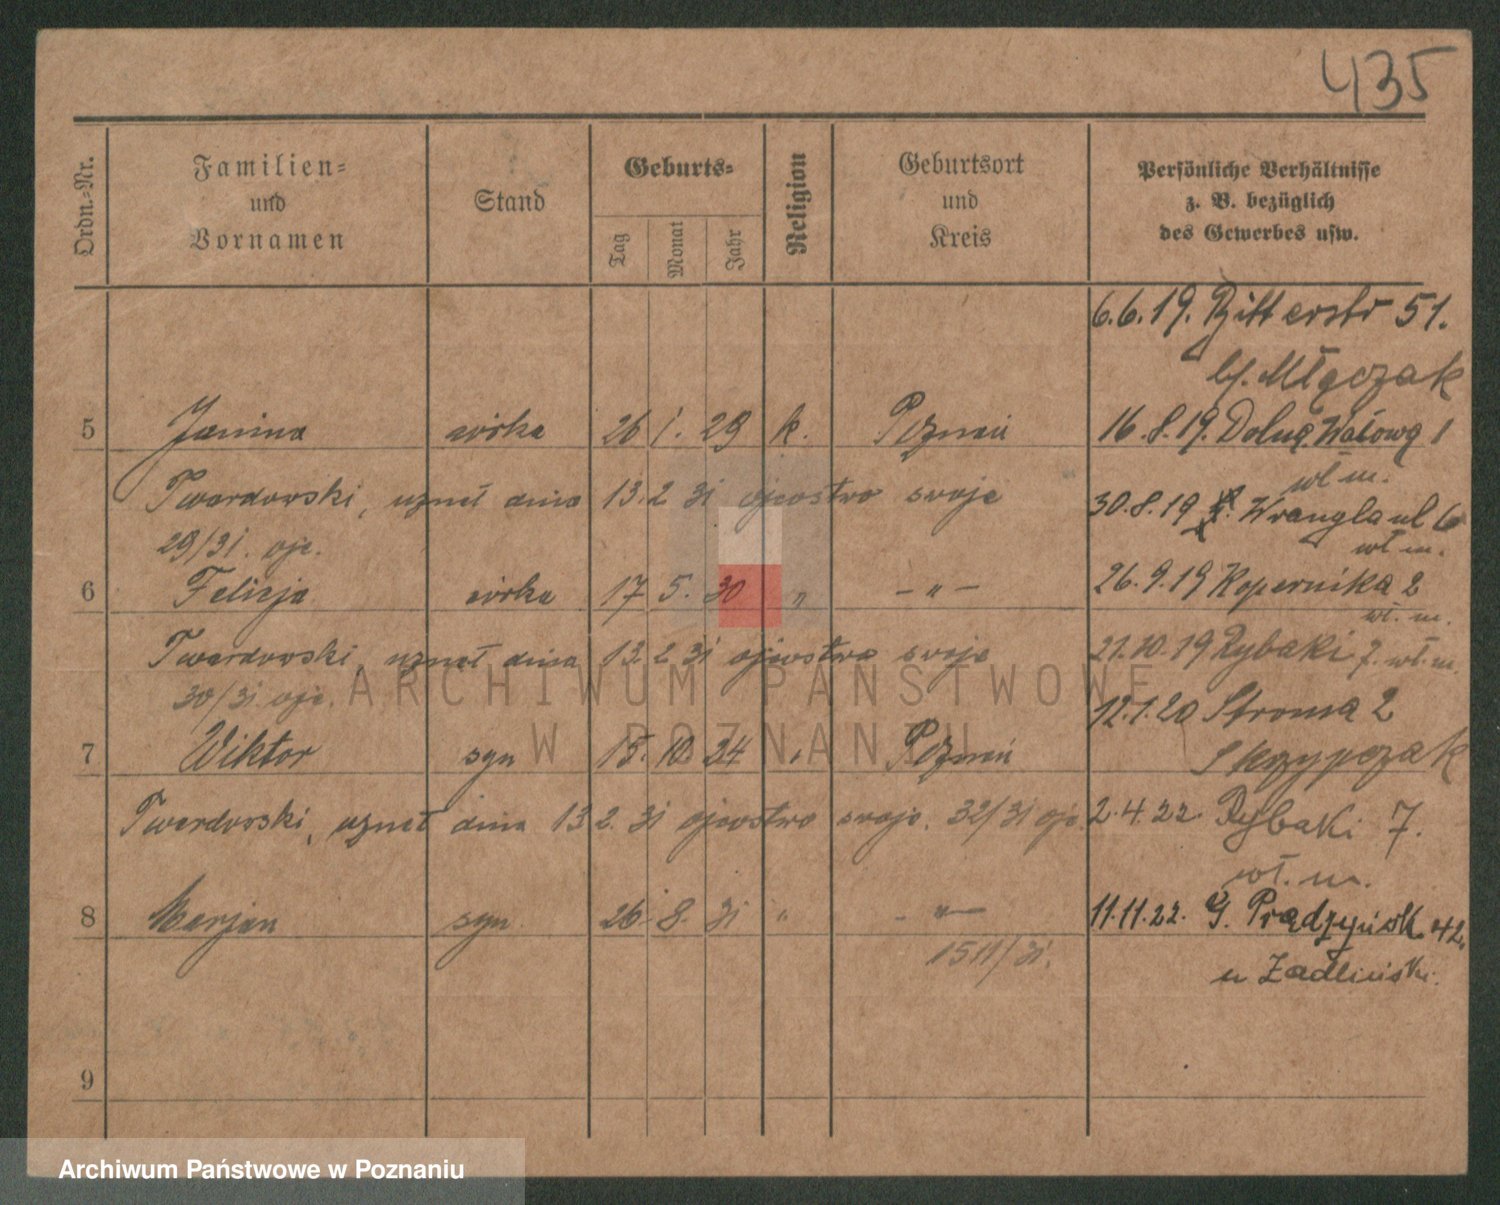 435
Ordn.-Nr.
Familien-
und
Vornamen
Stand
Geburts-
Tag
Monat
Jahr
Religion
Geburtsort
und
Kreis
Persönliche Verhältnisse
z. B. bezüglich
des Gewerbes usw.
6.6.19. Ritterstr 51.
b/. Młyczak
5 Janina córka 26 1. 29 k. Poznań
16.8.19. Dolną Wałową 1
wł m.
Twardowski, uznał dnia 13.2 31 ojcostwo swoje
30.8.19 Wrangla ul 6
wł m.
29/31. ojc.
6 Felicja córka 17 5. 30 " - " -
26.9.19 Kopernika 2
wł. m.
Twardowski, uznał dnia 13. 2. 31 ojcostwo swoje
21.10.19 Rybaki 7. wł. m.
30/31. ojc.
12.1.20 Stroma 2
Skrzypczak
7 Wiktor syn 15. 10. 24 " Poznań
Twardowski, uznał dnia 13 2. 31 ojcostwo swoje. 32/31 ojc.
2.4.22. Rybaki 7.
wł. m.
8 Marjan syn 26. 8. 31 " - " -
11.11.22. G. Prądzyńsk. 42.
1511/31.
u Zadliński.
9
ARCHIWUM PAŃSTWOWE
W POZNANIU
Archiwum Państwowe w Poznaniu